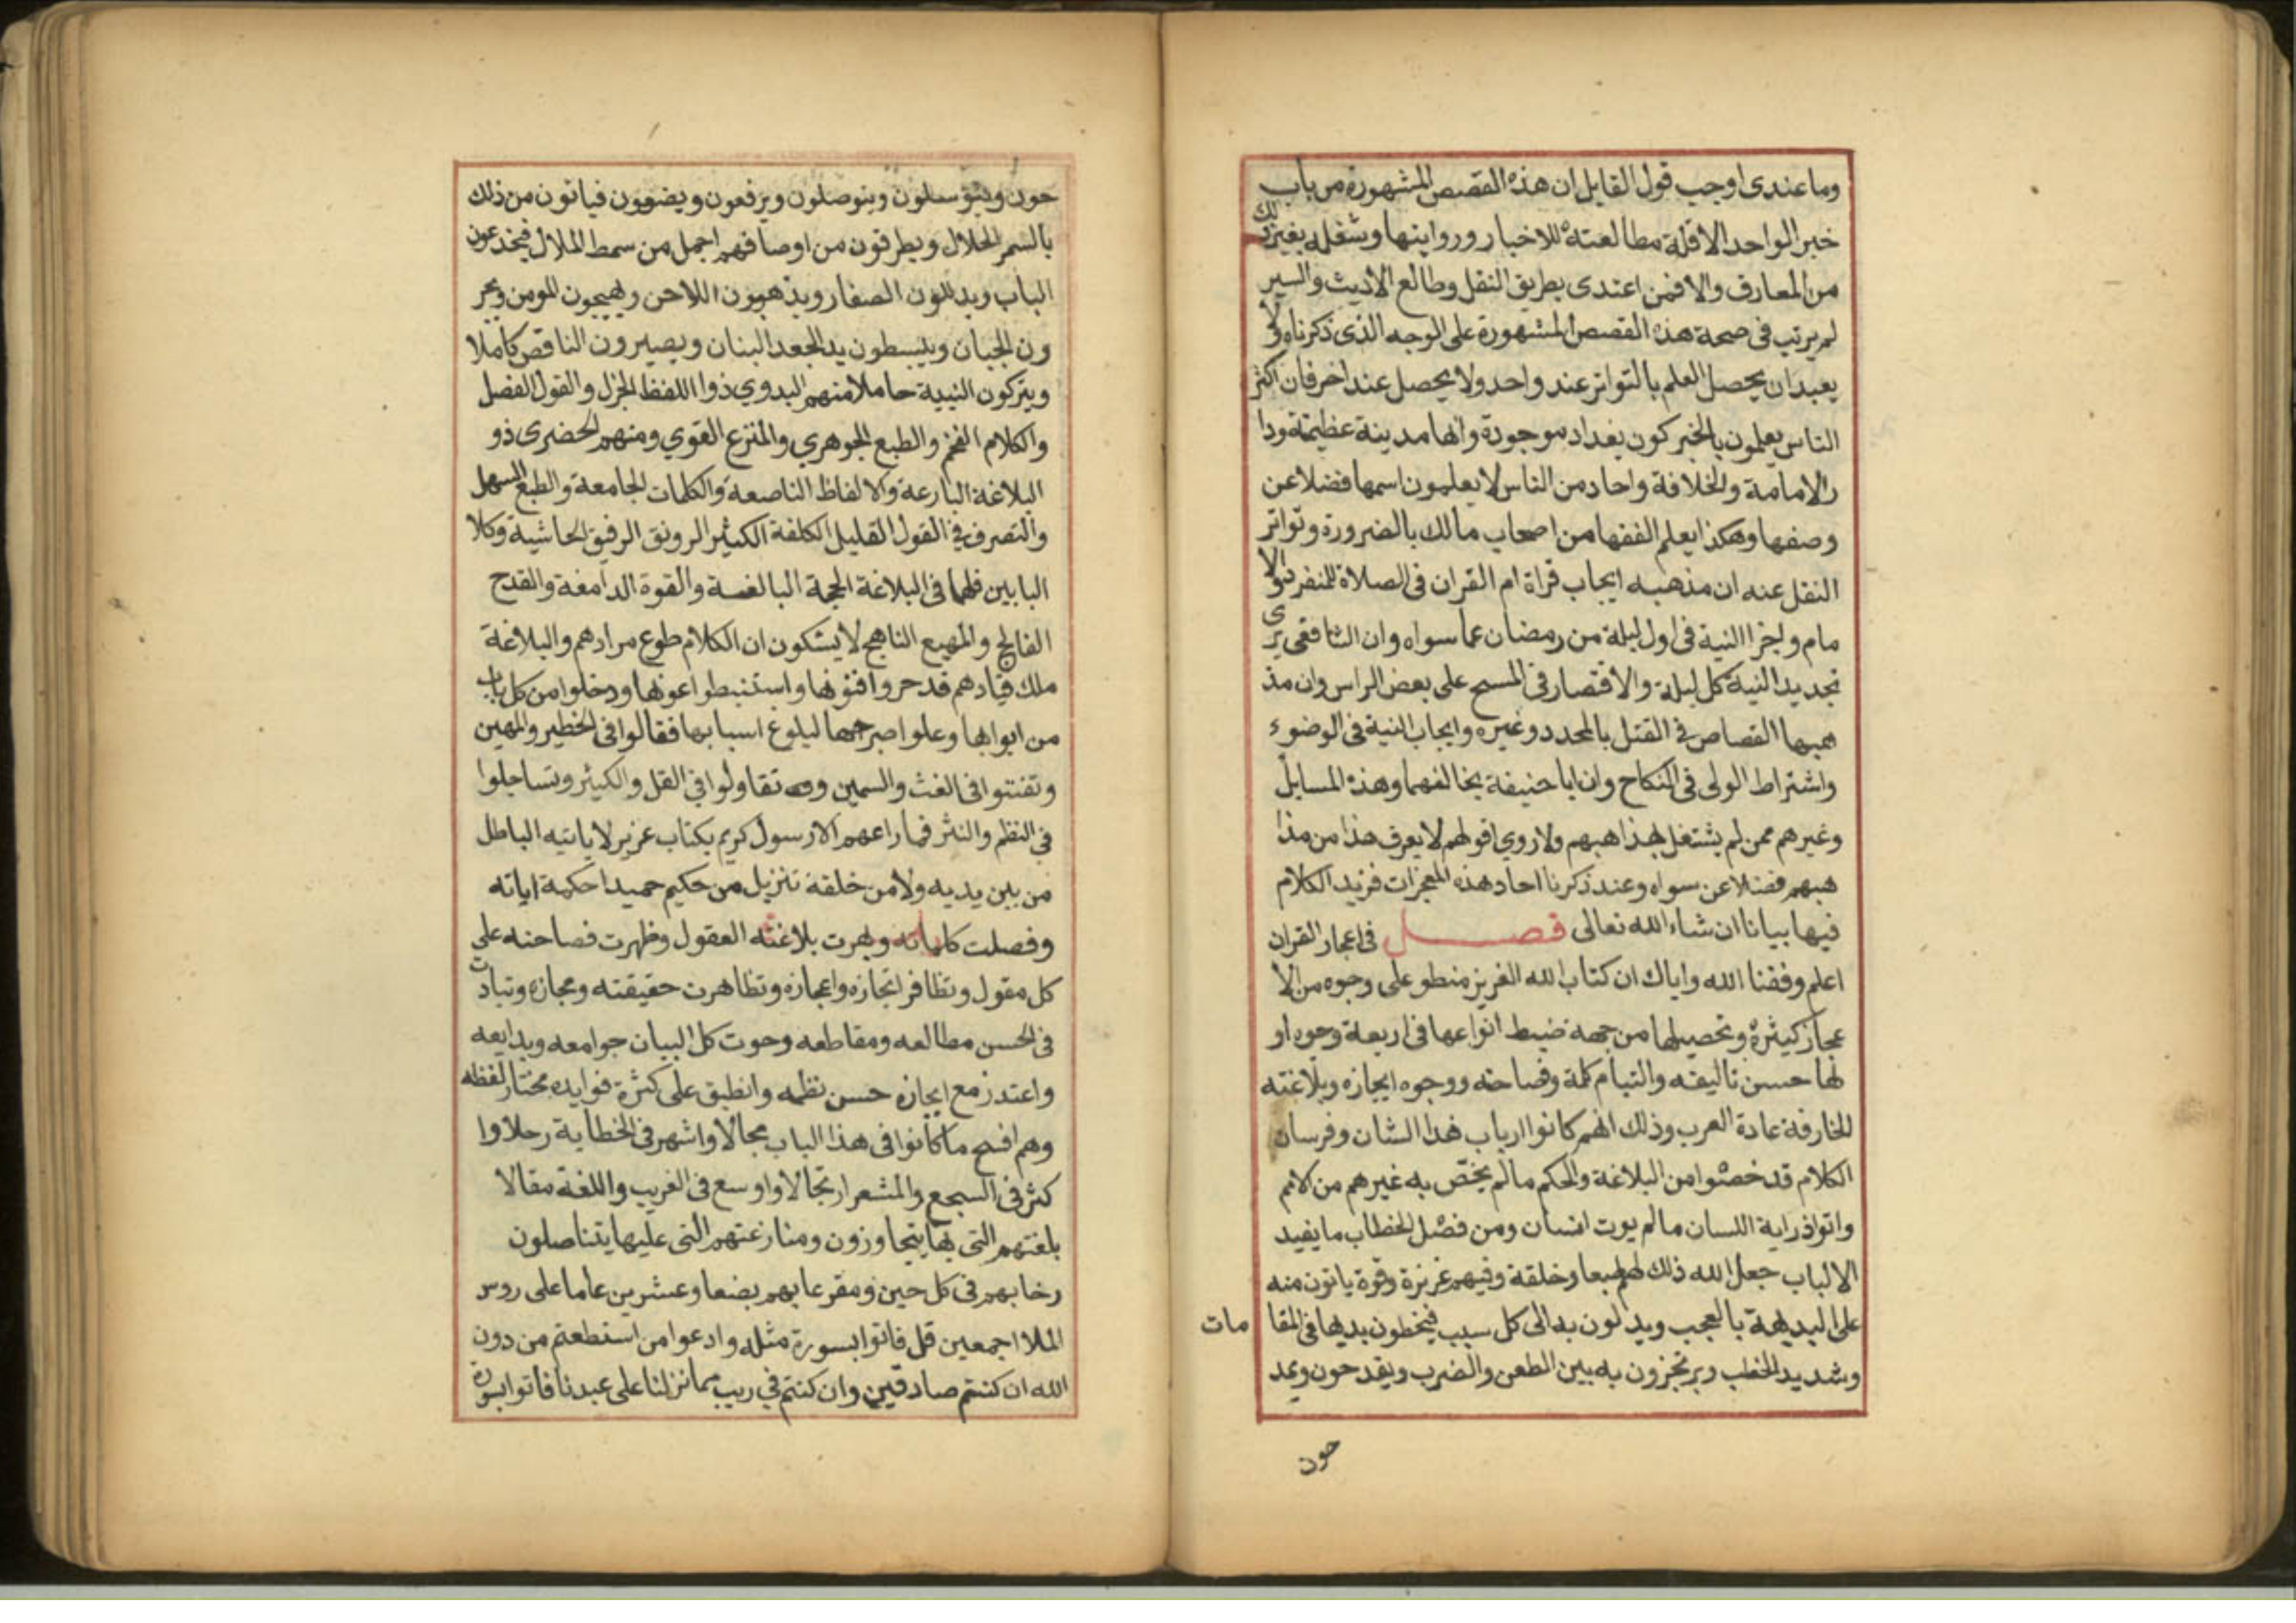 وما عندى اوجب قول القايل ان هذه القصص المشهورة من باب
خبر الواحد الا قلة مطالعته للاخبار وروايتها وشغله بغير ذلك
من المعارف والا فمن اعتدى بطريق النقل وطالع الاديث والسير
لم يرتب فى صحة هذه القصص المشهورة على الوجه الذى ذكرناه ولا
يعبد ان يحصل العلم بالتواتر عند واحد ولا يحصل عند اخر فان اكثر
الناس يعلمون بالخبر كون بغداد موجودة وانها مدينة عظيمة ودا
رالامامة والخلافة واحاد من الناس لا يعلمون اسمها فضلا عن
وصفها وهكذا يعلم الفقها من اصحاب مالك بالضرورة وتواتر
النقل عنه ان مذهبه ايجاب قراة ام القران فى الصلاة للمنفرد والا
مام واجزا النية فى اول ليلة من رمضان عما سواه وان الشافعى يرى
تجديد النية كل ليلة والاقتصار فى المسح على بعض الراس وان مذ
هبهما القصاص في القتل بالمحدد وغيره وايجاب النية فى الوضوء
واشتراط الولى فى النكاح وان ابا حنيفة يخالفهما وهذه المسايل
وغيرهم ممن لم يشتغل بمذاهبهم ولا روي اقولهم لا يعرف هذا من مذا
هبهم فضلا عن سواه وعند ذكرنا احاد هذه المعجزات فزيد الكلام
فيها بيانا ان شاء الله تعالى فصل فى اعجاز القران
اعلم وفقنا الله واياك ان كتاب الله العزيز منطو على وجوه من الا
عجاز كثيرة وتحصيلها من جهة ضبط انواعها فى اربعة وجوه او
لها حسن تاليفه والتيام كلمة وفصاحته ووجوه ايجازه وبلاغته
الخارقة عادة العرب وذلك انهم كانوا ارباب هذا الشان وفرسان
الكلام قد خصوا من البلاغة والحكم ما لم يخص به غيرهم من الامم
واتوا ذراية اللسان ما لم يوت انسان ومن فصل الخطاب ما يفيد
الالباب جعل الله ذلك لهم طبعا وخلقة وفيهم غريزة وقوة ياتون منه
على البديهة بالعجب ويدلون به الى كل سبب فيخطبون بديها فى المقا مات
وشديد الخطب ويرتجزون به بين الطعن والضرب ويقدحون ويمد
حون
حون ويتوسلون ويتوصلون ويرفعون ويضعون فياتون من ذلك
بالسحر الحلال ويطرقون من اوصافهم اجمل من سمط الملال فيخدعون
الباب ويدللون الصفار ويذهبون اللاحن ويهيجون المومن ويجر
ون الجبان ويبسطون يد الجعد البنان ويصيرون الناقص كاملا
ويتركون النبية حاملا منهم البدوي ذوا اللفظ الجزل والقول الفصل
والكلام الفخم والطبع الجوهري والمنزع القوي ومنهم الحضرى ذو
البلاغة البارعة والالفاظ الناصعة والكلمات الجامعة والطبع السهل
والتصرف في القول القليل الكلفة الكثير الرونق الرقيق الحاشية وكلا
البابين فلهما فى البلاغة الحجة البالغة والقوة الدامغة والقدح
الفالج والمهيع الناهج لا يشكون ان الكلام طوع مرادهم والبلاغة
ملك قيادهم قد حروا فنونها واستنبطوا عونها ودخلوا من كل باب
من ابوابها وعلوا صرحها لبلوغ اسبابها فقالوا فى الخطير والمهين
وتفننوا فى الغث والسمين وتقاولوا في القل والكثير وتساجلوا
في النظم والنثر فما راعهم الا رسول كريم بكتاب عزيز لا ياتيه الباطل
من بين يديه ولا من خلفه تنزيل من حكيم حميد احكمة اياته
وفصلت كلماته وبهرت بلاغته العقول وظهرت فصاحته على
كل مقول وتظافر ايجازه واعجازه وتظاهرت حقيقته ومجازه وتبارت
فى الحسن مطالعه ومقاطعه وحوت كل البيان جوامعه وبدايعه
واعتدر مع ايجازه حسن نظمه وانطبق على كثرة فوايده مختار لفظه
وهم افسح ما كانوا فى هذا الباب مجالا واشهر فى الخطابة رجلاوا
كثر فى السجع والمشعر ارتجالا واوسع فى الغريب واللغة مقالا
بلغتهم التى بها يتجاوزون ومنازعتهم التى عليها يتناصلون
رخابهم فى كل حين ومقرعا بهم بضعا وعشرين عاما على روس
الملا اجمعين قل فاتوا بسورة مثله وادعوا من استطعتم من دون
الله ان كنتم صادقين وان كنتم في ريب مما نزلنا على عبدنا فاتوا بسورة